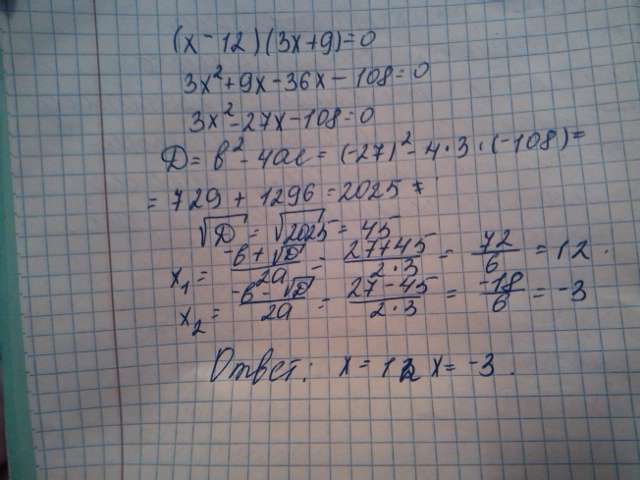 (x - 12)(3x+9)=0
3x²+9x-36x-108=0
3x²-27x-108=0
D = b² - 4ac = (-27)² - 4·3·(-108)=
= 729 + 1296 = 2025
√D = √2025 = 45
x₁ = (-b+√D)/2a = (27+45)/(2·3) = 72/6 = 12.
x₂ = (-b-√D)/2a = (27-45)/(2·3) = -18/6 = -3
Ответ: x = 12 x = -3.